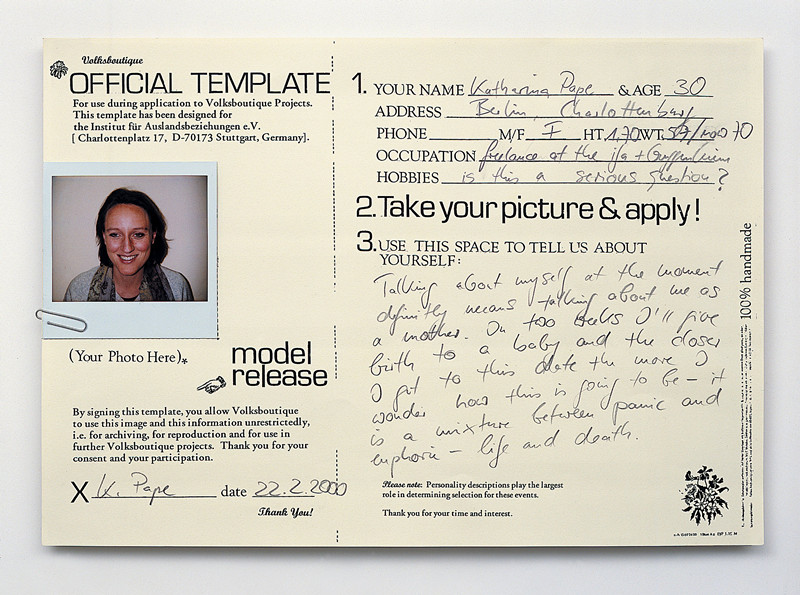 Volksboutique
OFFICIAL TEMPLATE
For use during application to Volksboutique Projects.
This template has been designed for
the Institut für Auslandsbeziehungen e.V.
[ Charlottenplatz 17, D-70173 Stuttgart, Germany].
(Your Photo Here)*
model
release
By signing this template, you allow Volksboutique
to use this image and this information unrestrictedly,
i.e. for archiving, for reproduction and for use in
further Volksboutique projects. Thank you for your
consent and your participation.
X K. Pape date 22.2.2000
Thank You!
1. YOUR NAME Katharina Pape & AGE 30
ADDRESS Berlin, Charlottenburg
PHONE M/F F HT 1,70 WT 59/ 70
OCCUPATION freelance at the ifa +
HOBBIES is this a serious question?
2. Take your picture & apply!
3. USE THIS SPACE TO TELL US ABOUT
YOURSELF:
Talking about myself at the moment
definitly means talking about me as
a mother. In two weeks I'll give
birth to a baby and the closer
I get to this date the more I
wonder how this is going to be – it
is a mixture between panic and
euphoria – life and death.
Please note: Personality descriptions play the largest
role in determining selection for these events.
Thank you for your time and interest.
100% handmade